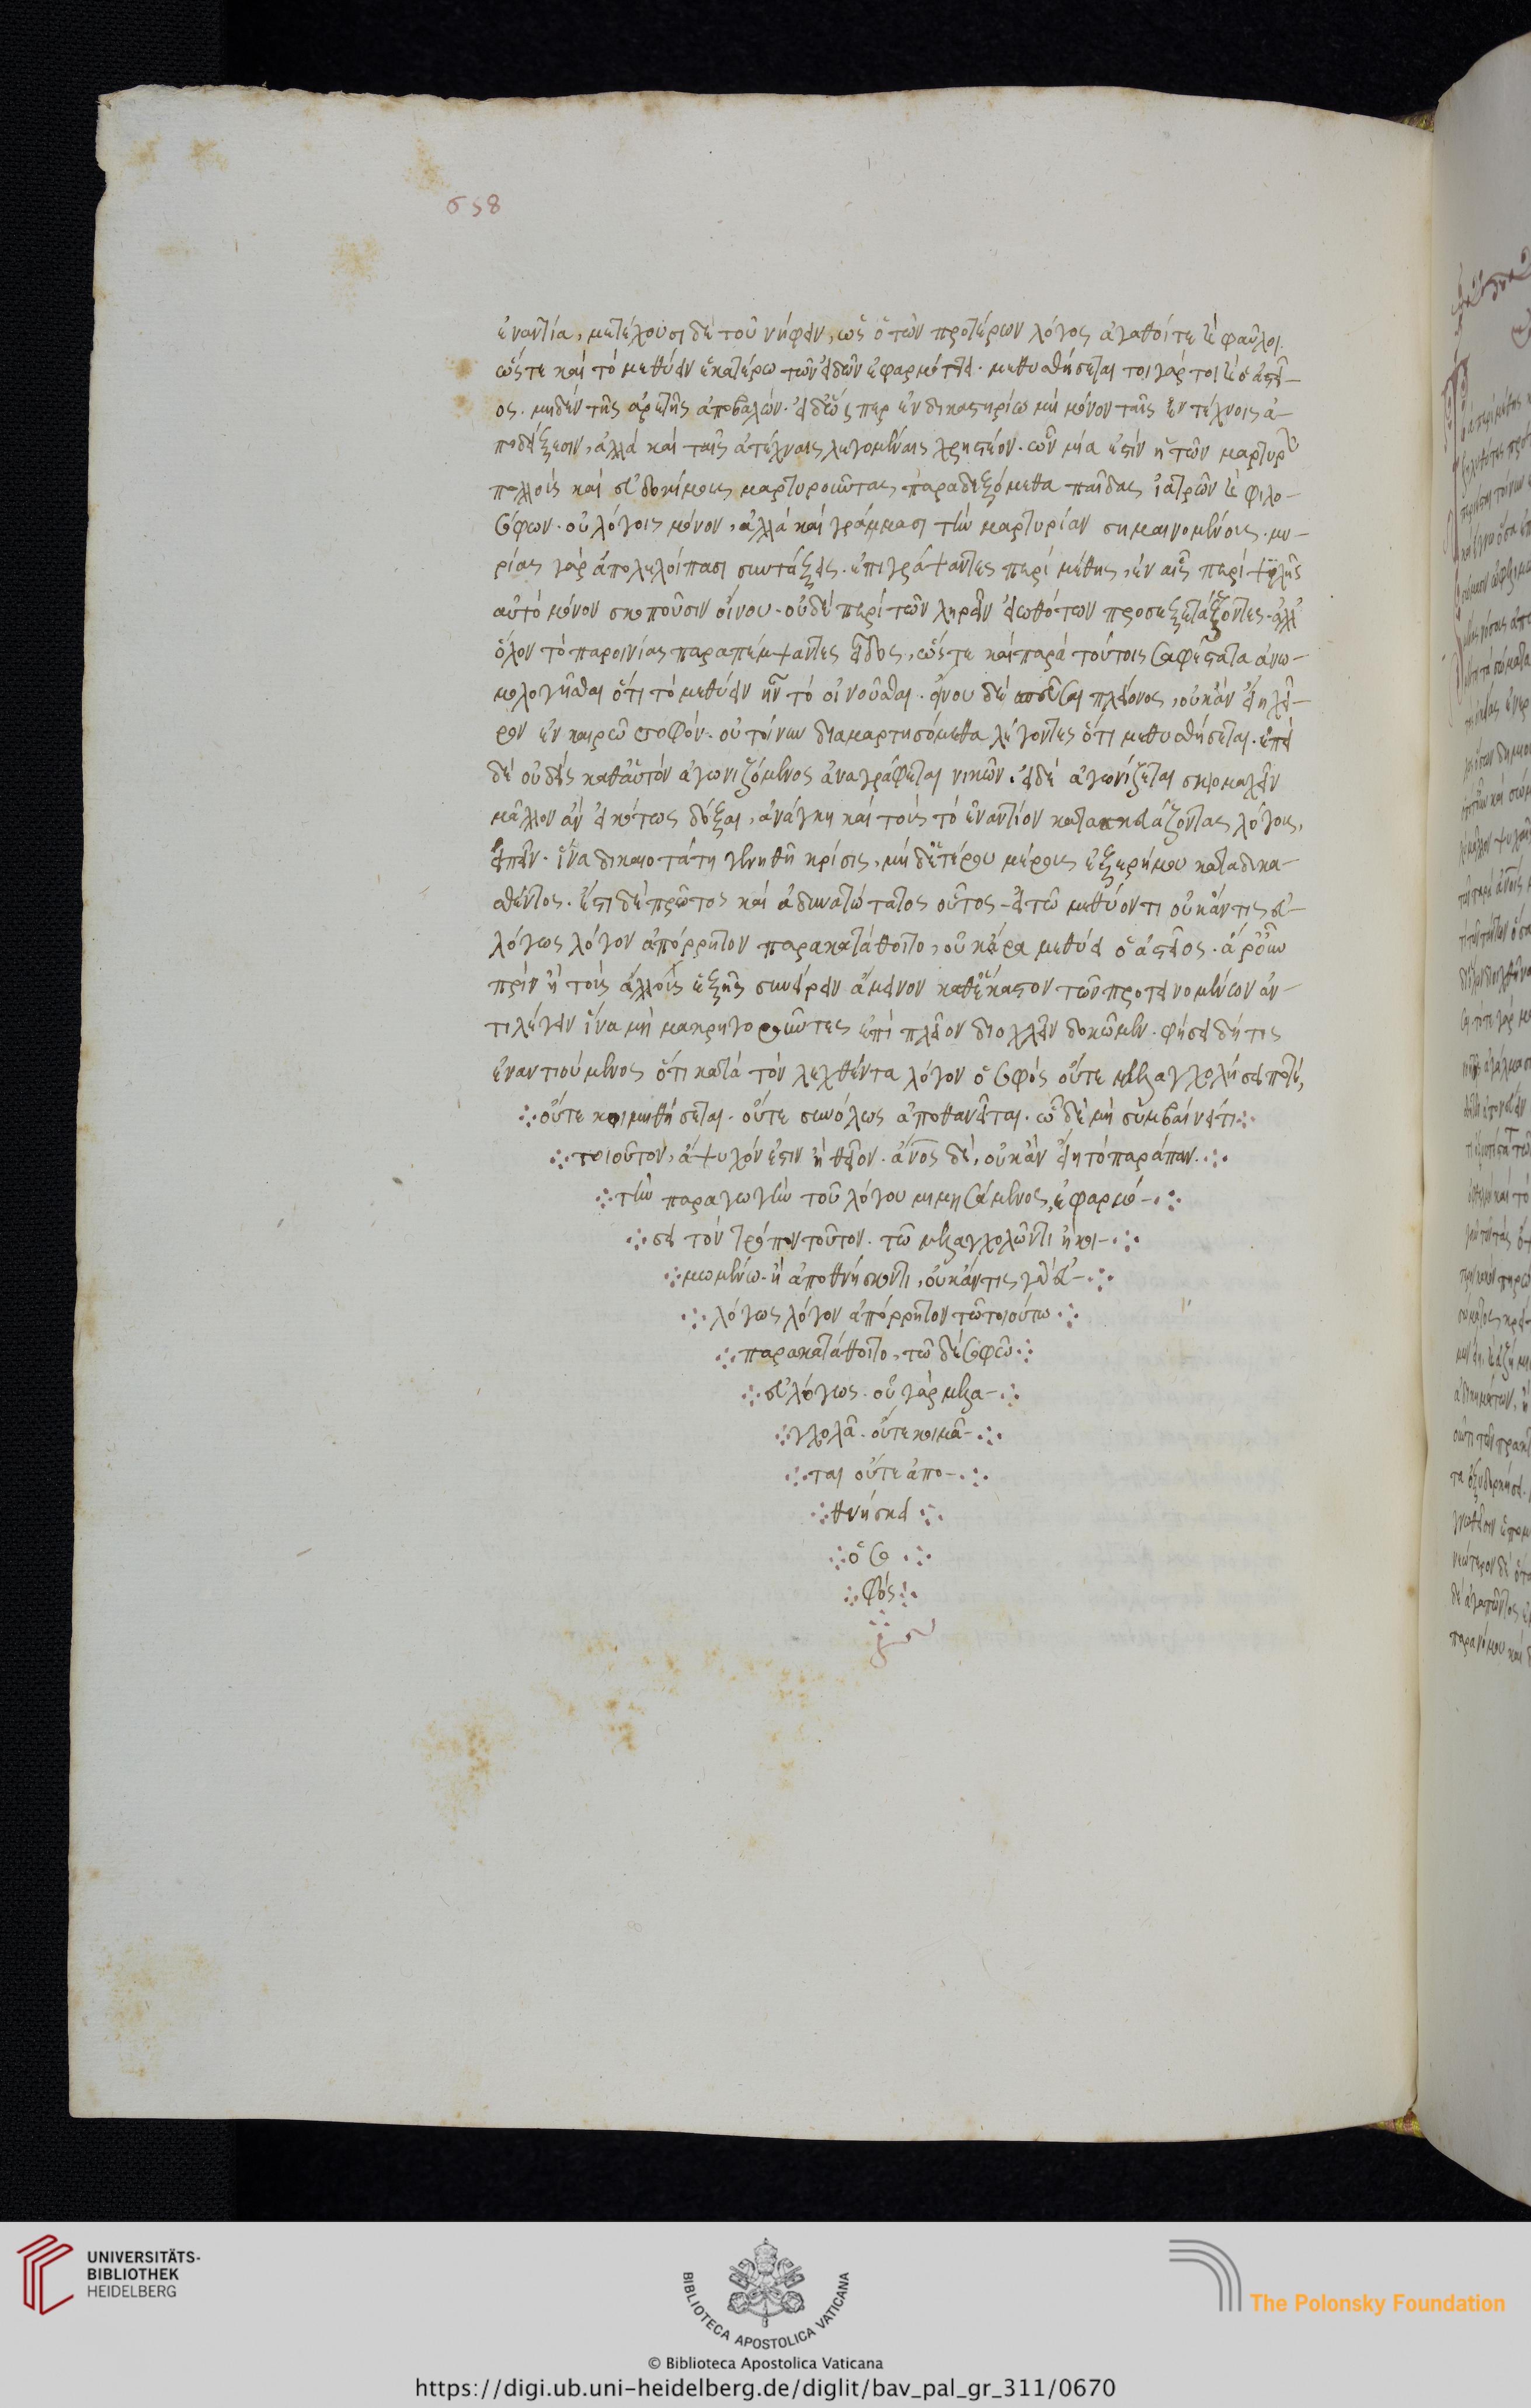 658
ἐναντία, μετέχουσι δὲ τοῦ νήφειν, ὡς ὁ τῶν προτέρων λόγος ἀγαθοί τε καὶ φαῦλοι.
ὥστε καὶ τὸ μεθύειν ἑκατέρω τῶν εἰδῶν ἐφαρμόττει. μεθυσθήσεται τοιγάρτοι καὶ ὁ ἀστεῖ-
ος. μηδὲν τῆς ἀρετῆς ἀποβαλών. εἰ δ' ὥσπερ ἐν δικαστηρίω μὴ μόνον ταῖς ἐντέχνοις ἀ-
ποδείξεσιν, ἀλλὰ καὶ ταῖς ἀτέχνοις λεγομέναις χρηστέον. ὧν μία ἐστὶν ἡ τῶν μαρτύρων
πολλοὺς καὶ εὐδοκίμους μαρτυροῦντας παραδεξόμεθα παῖδας ἰατρῶν καὶ φιλο-
σόφων. οὐ λόγοις μόνον, ἀλλὰ καὶ γράμμασι τὴν μαρτυρίαν σημαινομένους. μυ-
ρίας γὰρ ἀπολελοίπασι συντάξεις. ἐπιγράψαντες περὶ μέθης, ἐν αἷς περὶ ψιλῆς
αὐτὸ μόνον σκοποῦσιν οἴνου. οὐδὲ περὶ τῶν ληρεῖν εἰωθότων προσεξετάζοντες. ἀλλ'
ὅλον τὸ παροινίας παραπέμψαντες εἶδος, ὥστε καὶ παρὰ τούτοις σαφέστατα ἀνω-
μολογῆσθαι ὅτι τὸ μεθύειν ἦν τὸ οἰνοῦσθαι. οἴνου δὲ σπᾶσαι πλείονος, οὐκ ἂν εἴη χεῖ-
ρον ἐν καιρῶ σοφόν. οὐ τοίνυν διαμαρτησόμεθα λέγοντες ὅτι μεθυσθήσεται. ἐπεὶ
δὲ οὐδεὶς καθ' αὑτὸν ἀγωνιζόμενος ἀναγράφεται νικῶν. εἰ δὲ ἀγωνίζεται σκιομαχεῖν
μᾶλλον ἂν εἰκότως δόξαι, ἀνάγκη καὶ τοὺς τὸ ἐναντίον κατασκευάζοντας λόγους,
εἰπεῖν. ἵνα δικαιοτάτη γενηθῆ κρίσις, μὴ δ' ἑτέρου μέρους ἐξερήμου καταδικα-
σθέντος. ἔστι δὲ πρῶτος καὶ δυνατώτατος οὗτος. εἰ τῶ μεθύοντι οὐκ ἄν τις εὐ-
λόγως λόγον ἀπόρρητον παρακατάθοιτο, οὐκ ἄρα μεθύει ὁ ἀστεῖος.
πρὶν ἢ τοὺς ἄλλους ἑξῆς συνείρειν ἄμεινον καθ' ἕκαστον τῶν προτεινομένων ἀν-
τιλέγειν ἵνα μὴ μακρηγοροῦντες ἐπὶ πλεῖον διοχλεῖν δοκῶμεν. φήσει δή τις
ἐναντιούμενος ὅτι κατὰ τὸν λεχθέντα λόγον ὁ σοφὸς οὔτε μελαγχολήσει ποτέ,
οὔτε κοιμηθήσεται. οὔτε συνόλως ἀποθανεῖται. ὧ δὲ μὴ συμβαίνει τι
τοιοῦτον, ἄψυχόν ἐστιν ἢ θεῖον. ἄνος δὲ, οὐκ ἂν εἴη τὸ παράπαν.
τὴν παραγωγὴν τοῦ λόγου μιμησάμενος, ἐφαρμό-
σει τὸν τρόπον τοῦτον. τῶ μελαγχολῶντι ἢ κοι-
μωμένω. ἢ ἀποθνήσκοντι, οὐκ ἄν τις γε εὐ-
λόγως λόγον ἀπόρρητον τῶ τοιούτω
παρακατάθοιτο, τῶ δὲ σοφῶ
εὐλόγως. οὐ γὰρ μελα-
γχολᾶ. οὔτε κοιμᾶ-
ται οὔτε ἀπο-
θνήσκει
ὁ σο
φός
UNIVERSITÄTS-
BIBLIOTHEK
HEIDELBERG
BIBLIOTECA APOSTOLICA VATICANA
The Polonsky Foundation
© Biblioteca Apostolica Vaticana
https://digi.ub.uni-heidelberg.de/diglit/bav_pal_gr_311/0670